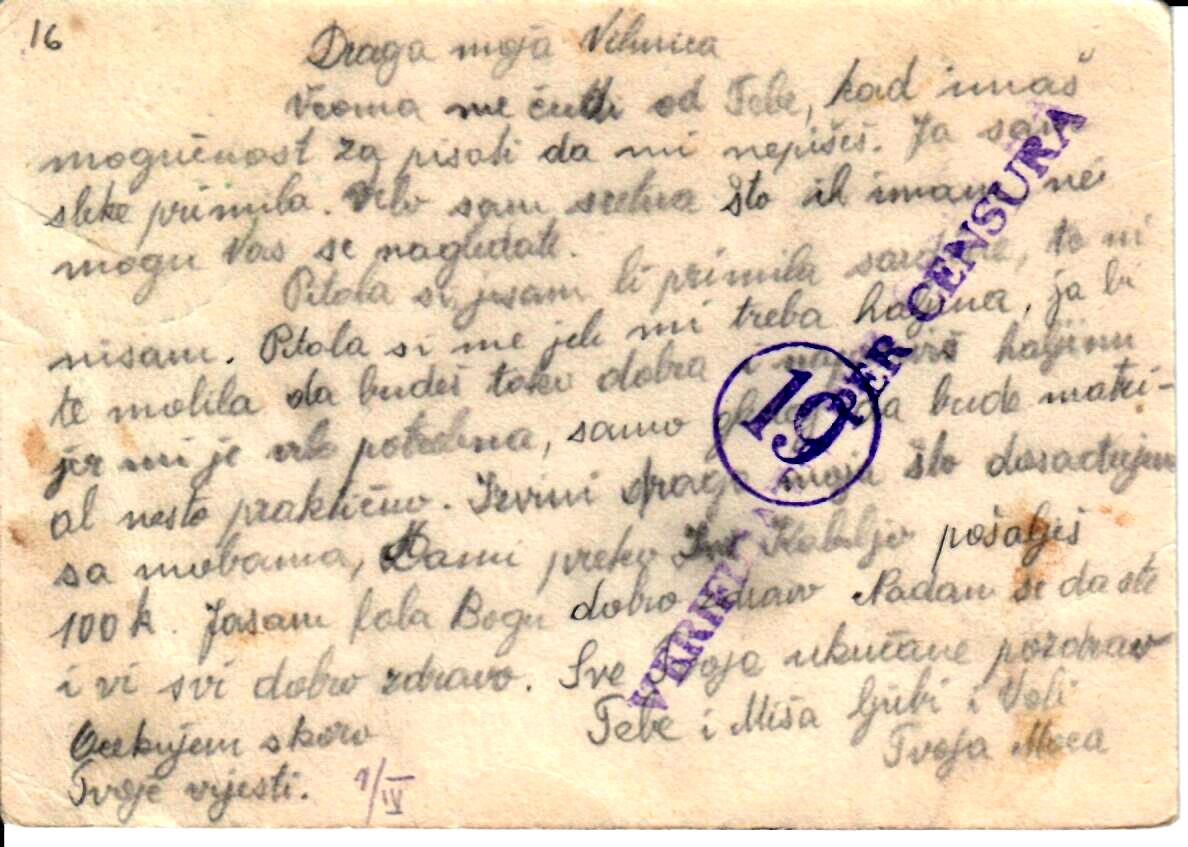 16
Draga moja Vilmica
Veoma me čudi od Tebe, kad imaš
mogućnost za pisati da mi nepišeš. Ja sam
slike primila. Vrlo sam sretna što ih imam, ne
mogu Vas se nagledati.
Pitala si jesam li primila sardine, to ni
nisam. Pitala si me jeli mi treba haljina, ja bi
te molila da budeš tako dobra i haljinu
jer mi je vrlo potrebna, samo gledaj da bude materi-
al nešto praktično. Izvini draga moja što dosađujem
sa molbama, Dami preko Kabiljo pošalješ
100 k. Jasam fala Bogu dobro zdravo Nadam se da ste
i vi svi dobro zdravo. Sve Tvoje ukućane pozdrav
Tebe i Miša ljubi i Voli
Očekujem skoro
Tvoja Moca
Tvoje vijesti.
1/IV
VERIFICATO PER CENSURA
19